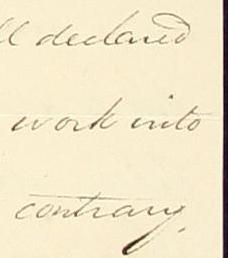 ll declared
work into
contrary.